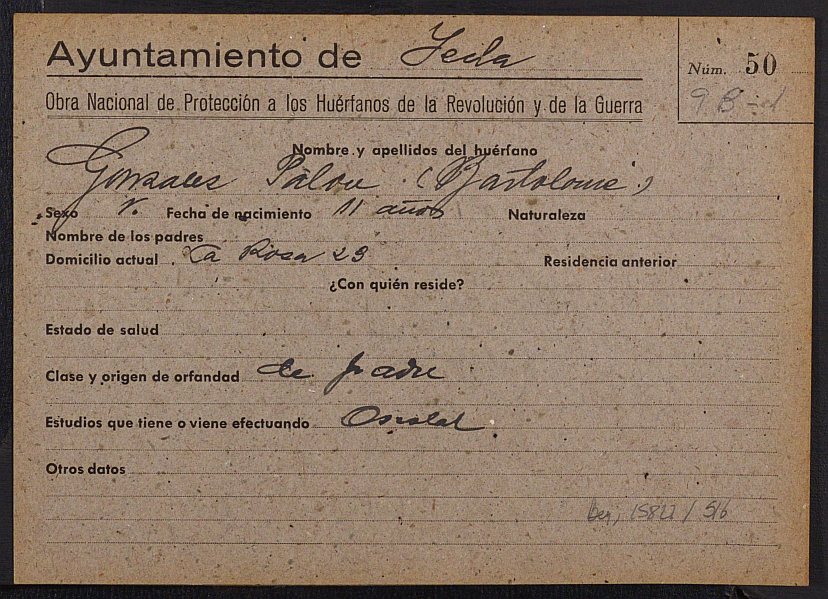 Ayuntamiento de Yecla
Núm. 50
Obra Nacional de Protección a los Huérfanos de la Revolución y de la Guerra
Nombre y apellidos del huérfano
Gonzales Palou (Bartolome)
Sexo V. Fecha de nacimiento 11 años Naturaleza
Nombre de los padres
Domicilio actual La Rosa 23 Residencia anterior
¿Con quién reside?
Estado de salud
Clase y origen de orfandad de padre
Estudios que tiene o viene efectuando
Otros datos
/ 516